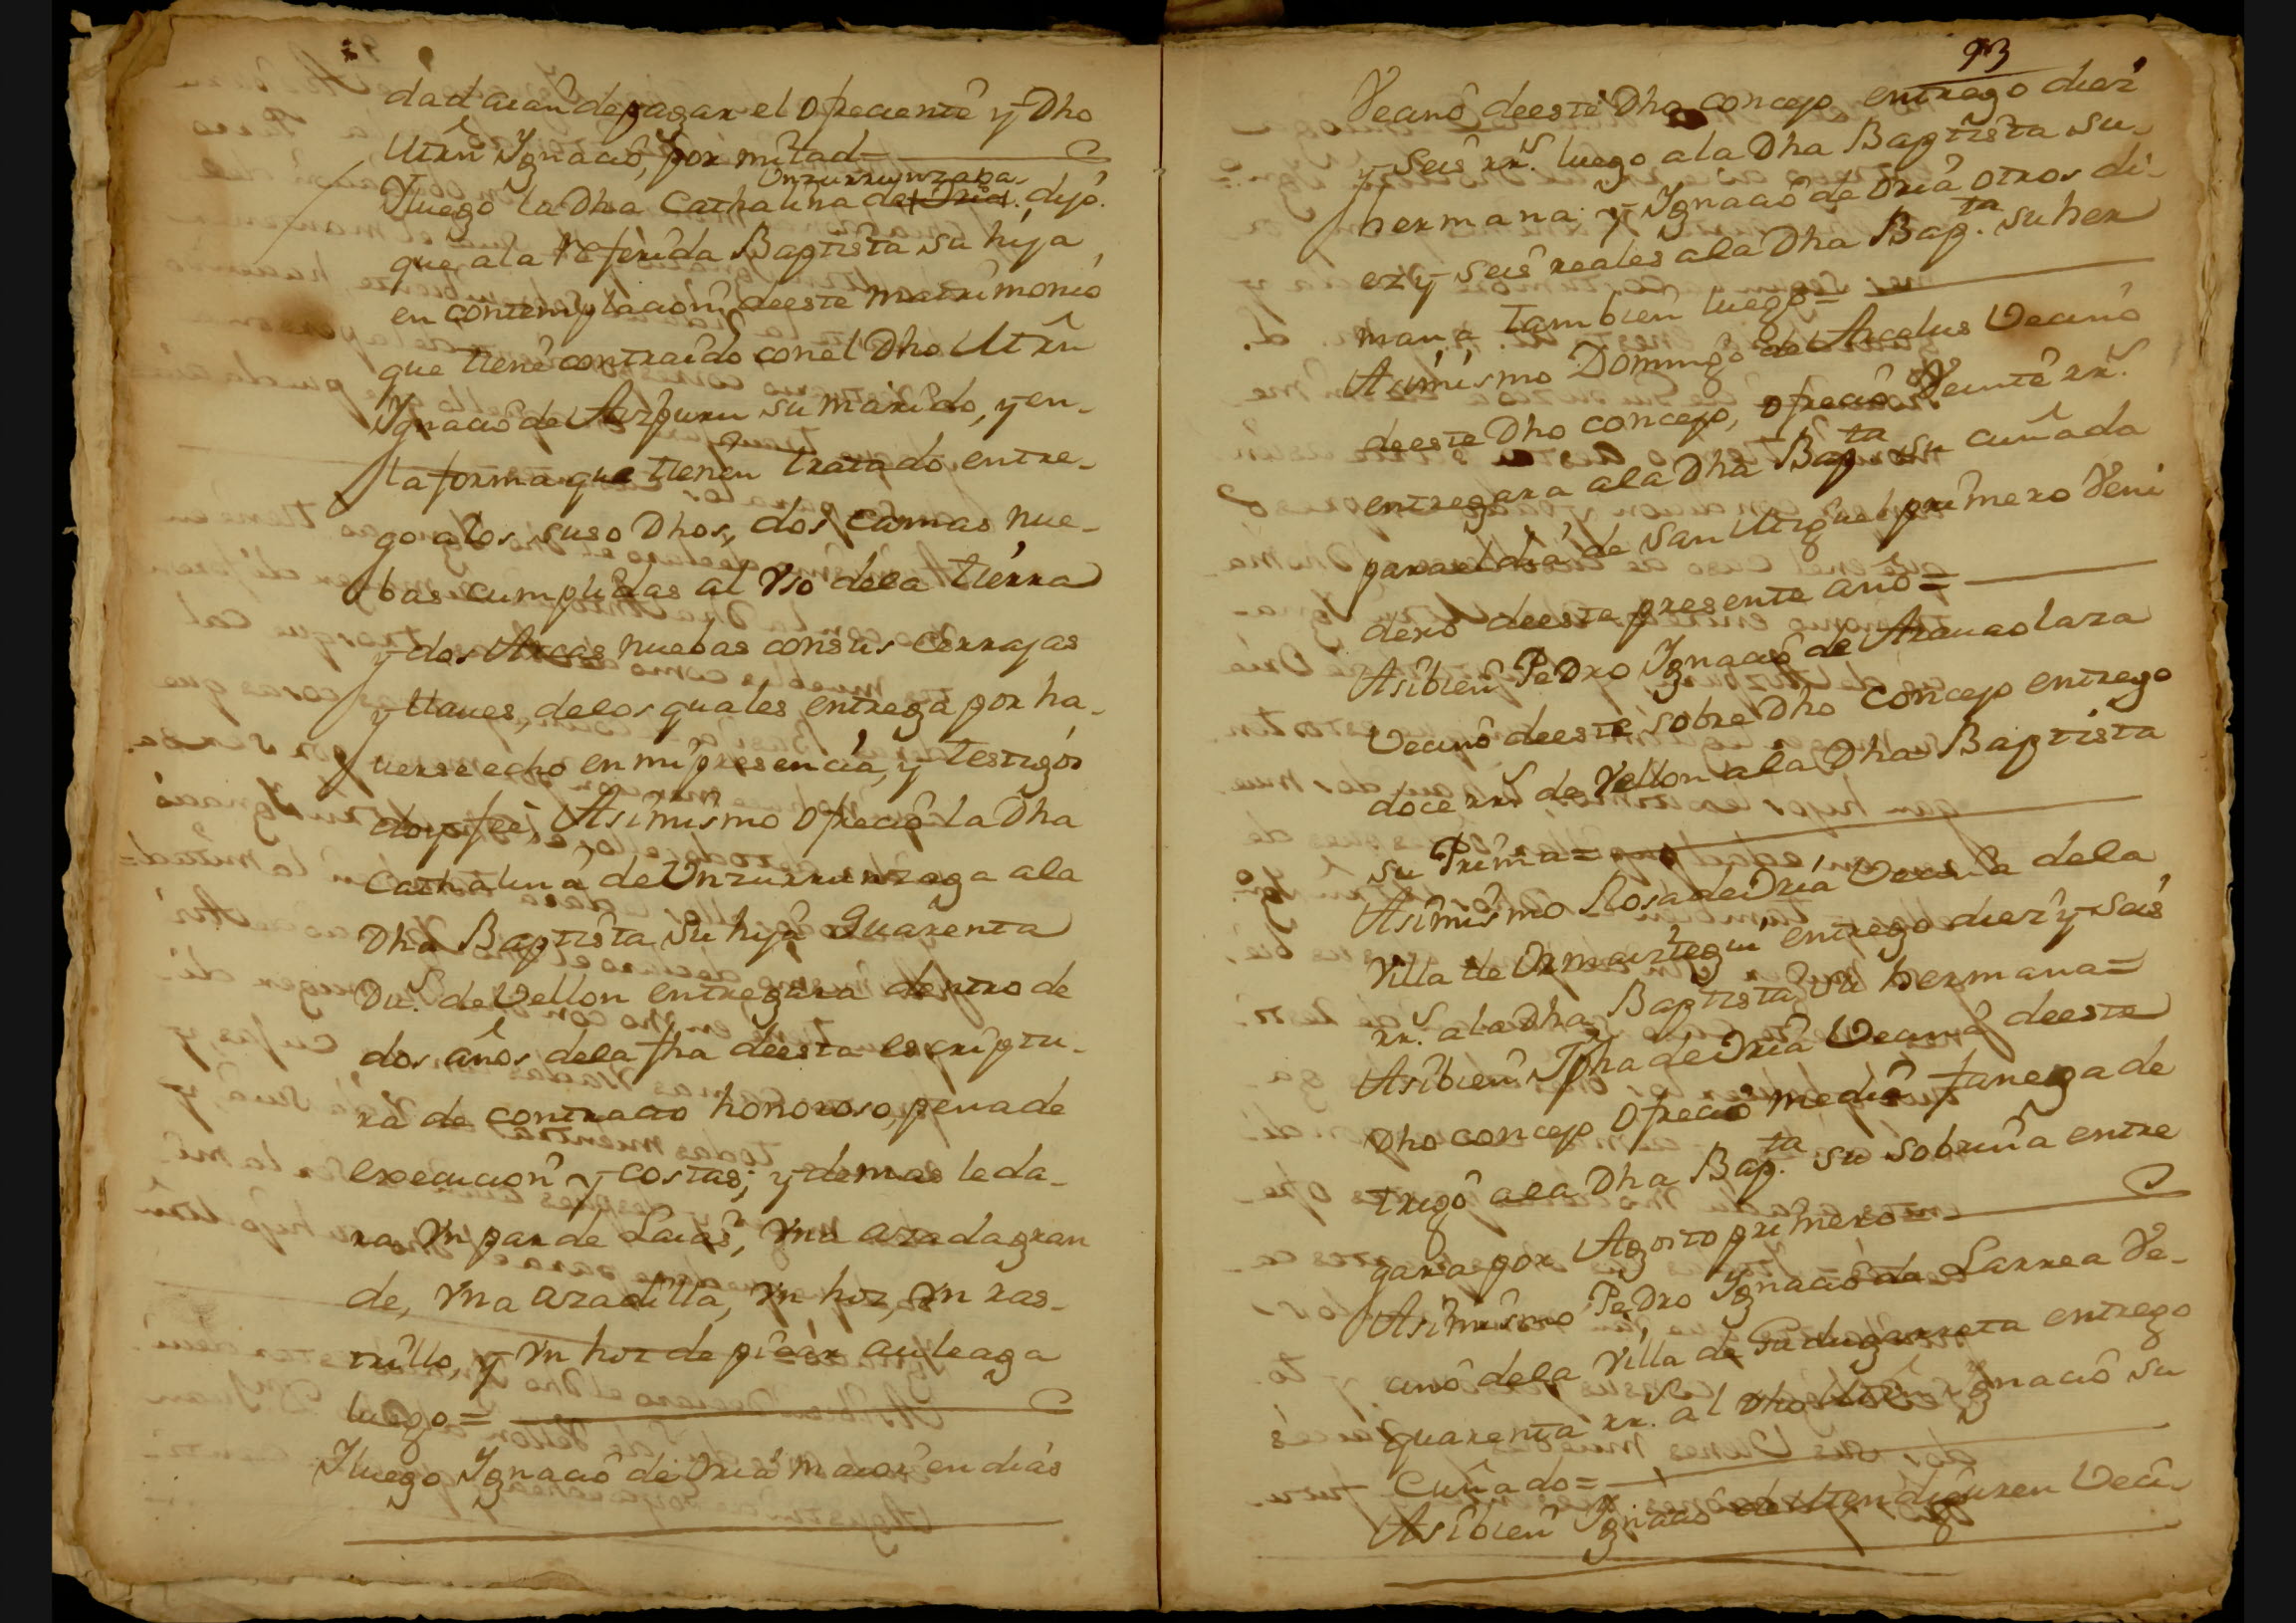 dad aian de pagar el ofreciente y Dho
Mrn Ignacio, por mitad=
Unzurrunzaga
Y luego la Dha Cathalina de Oria. dijo.
que a la referida Baptista su hija
en contemplacion de este matrimonio
que tiene contraido con el Dho Mrn
Ignacio de Aizpuru su marido, y en
la forma que tienen tratado, entre-
go a los suso Dhos, dos camas nue-
bas cumplidas al vso de la tierra
y dos Arcas nuebas con sus cerrajas
y llaues, de los quales entrega por ha-
uerse echo en mi presencia, y testigos
doy fee, Asimismo ofrecio la Dha
Cathalina de Unzurrunzaga a la
Dha Baptista su hija quarenta
Dus. de Vellon entregara dentro de
dos años de la fha de esta escriptu-
ra de contrato honoroso, pena de
execucion y costas; y demas le da-
ra vn par de Laias, vna azada gran
de, vna azadilla, vn hoz, vn ras-
trillo, y vn hoz de picar auleaga
luego=
Y luego Ignacio de Oria maior en dias
93
Vecino de este Dho concejo entrego diez
y seis rrs. luego a la Dha Baptista su
hermana: y Ignacio de Oria otros di-
ez y seis reales a la Dha Bapta. su her
mana tambien luego=
Asimismo Domingo de Arcelus Vecino
de este Dho concejo, ofrecio Veinte rrs.
entregara a la Dha Bapta su cuñada
para el dia de San Miguel primero Veni
dero de este presente año=
Asibien Pedro Ignacio de Araucolaza
Vecino de este sobre Dho concejo entrego
doce rrs de Vellon a la Dha Baptista
su Prima=
Asimismo Rosa de Oria Vecina de la
Villa de Ormaiztegui entrego diez y seis
rrs. a la Dha Baptista su hermana=
Asibien Jpha de Oria Vecina de este
Dho concejo ofrecio media fanega de
trigo a la Dha Bapta. su sobrina entre
gara por Agosto primero=
Asimismo Pedro Ignacio de Larrea Ve-
cino de la Villa de Gudugarreta entrego
quarenta rrs. al Dho Mrn Ignacio su
Cuñado=
Asibien Ignacio de Mendiguren Veci-